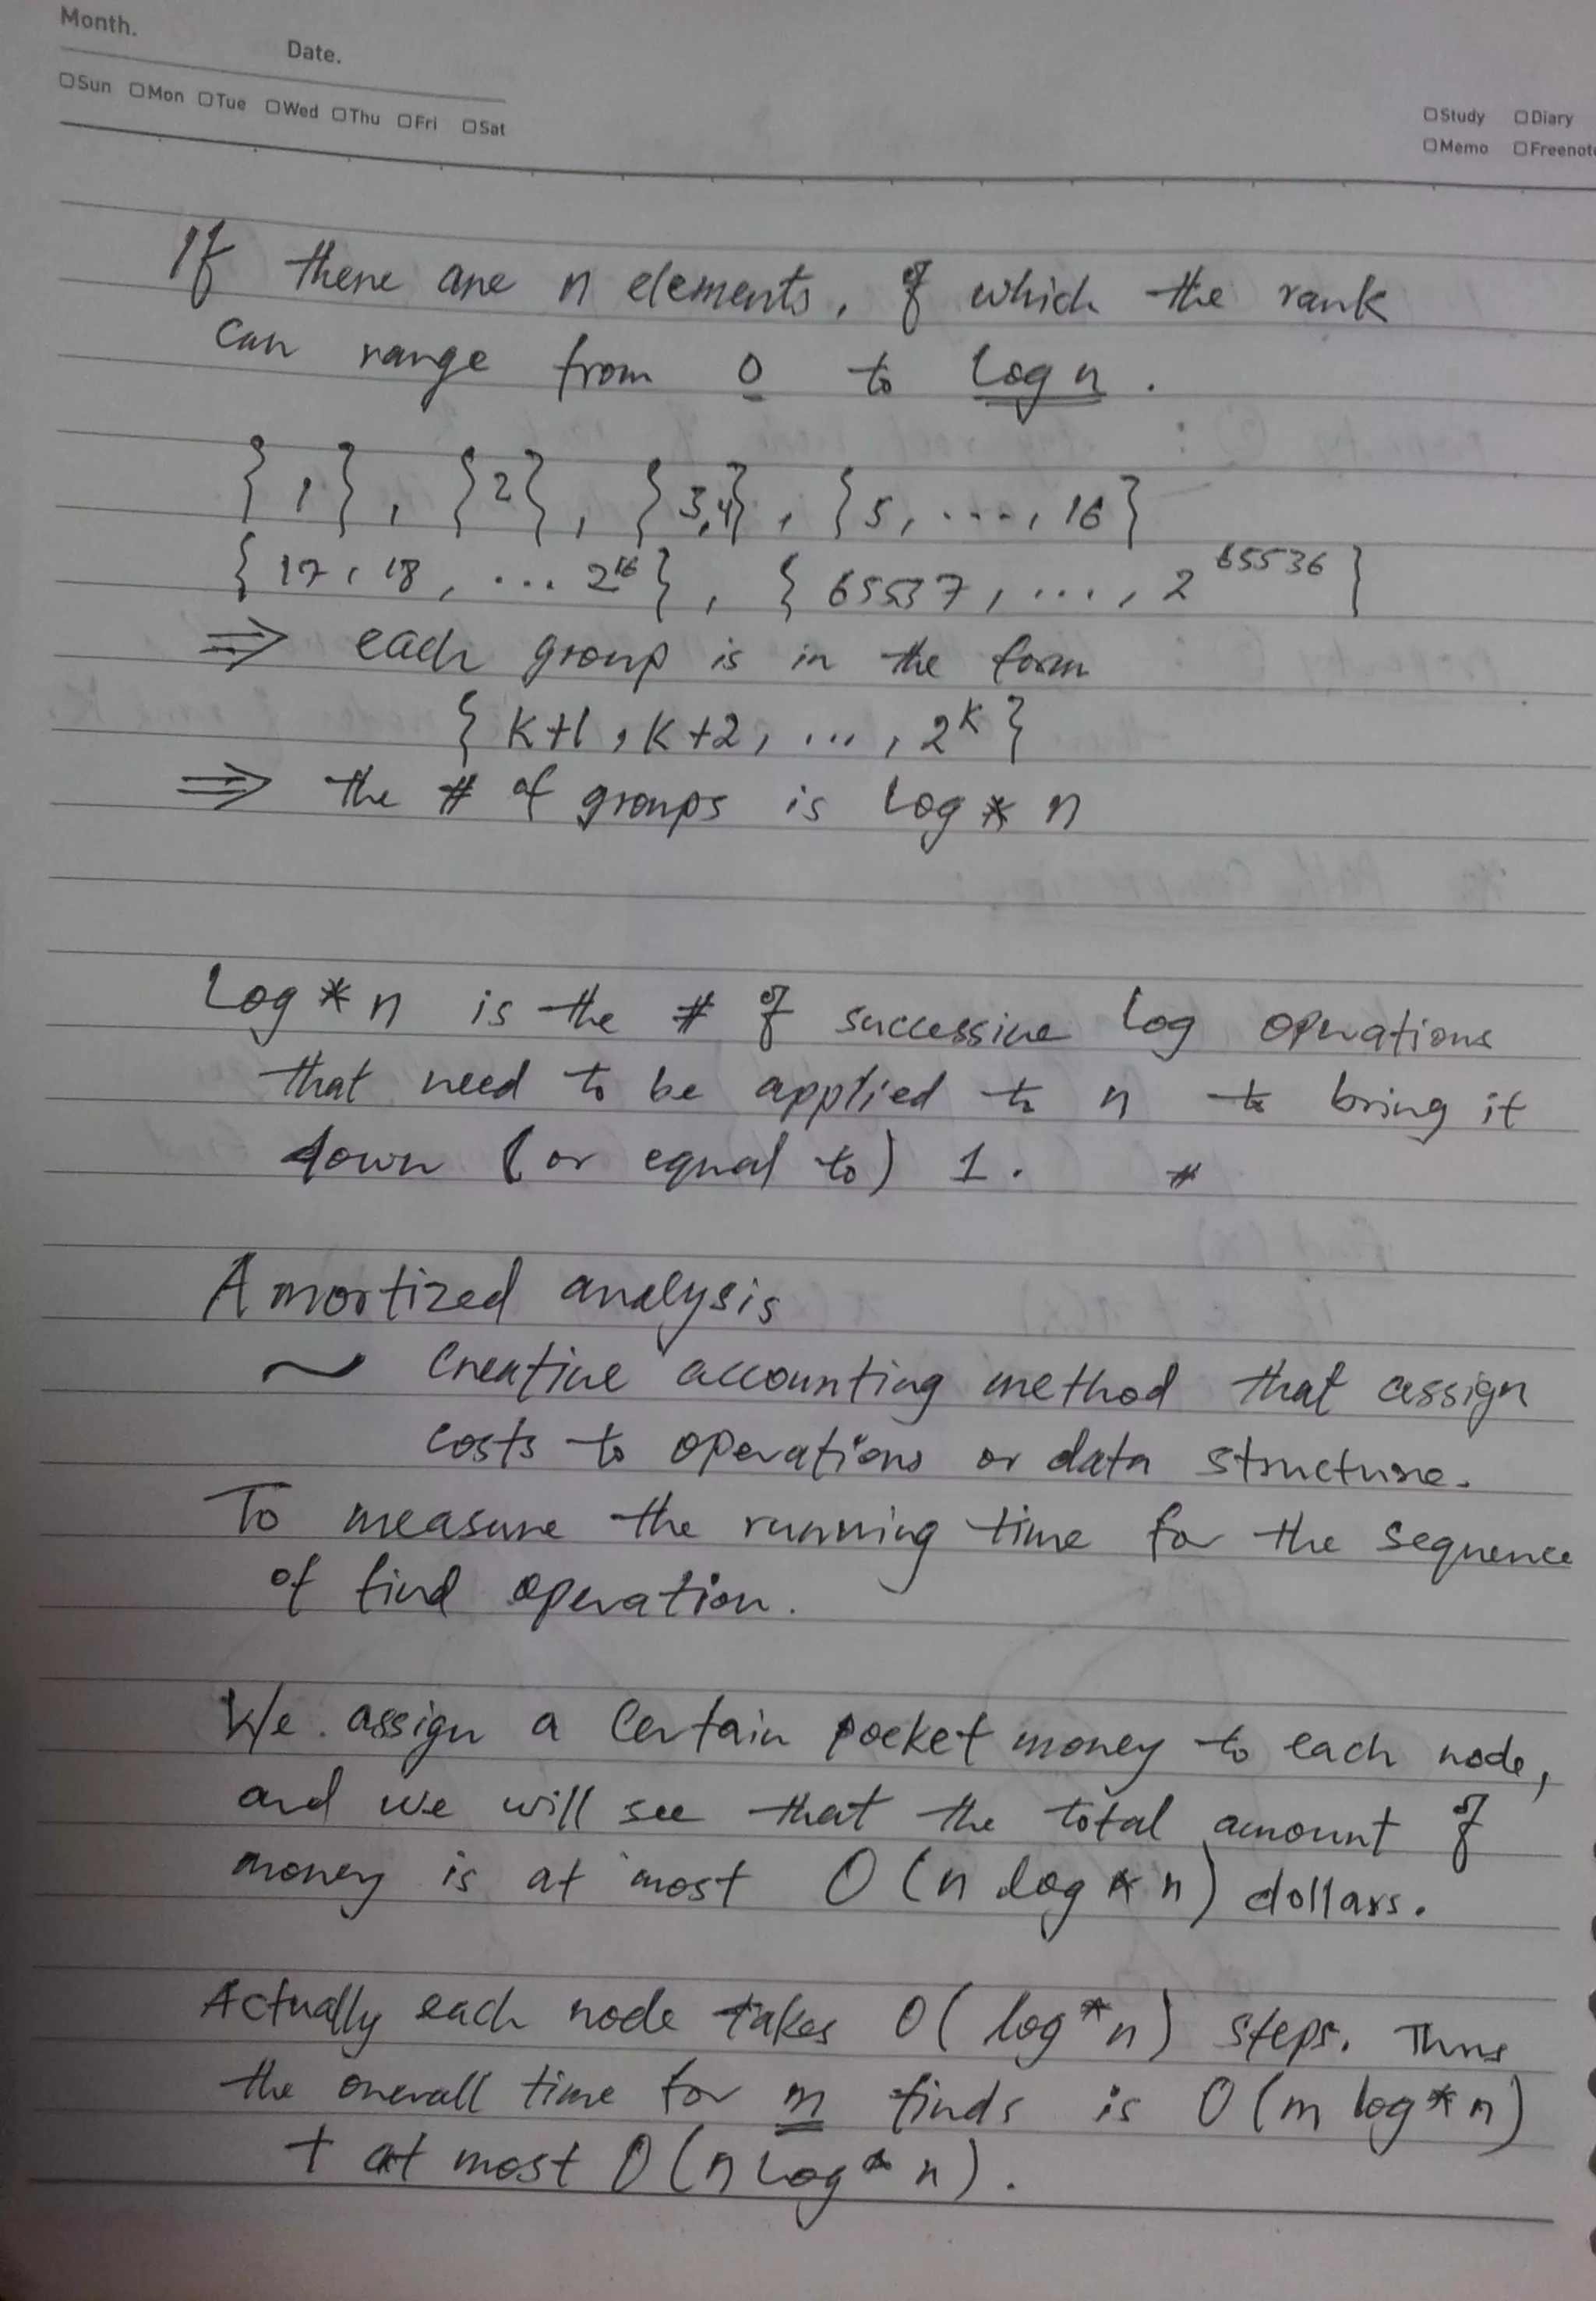 Month.
Date.
□Sun □Mon □Tue □Wed □Thu □Fri □Sat
□Study □Diary
□Memo □Freenote
If there are n elements, of which the rank
can range from 0 to log n.
{1}, {2}, {3,4}, {5, ..., 16}
{17, 18, ... 2^16}, {65537, ..., 2^65536}
⇒ each group is in the form
{k+1, k+2, ..., 2^k}
⇒ the # of groups is log * n
Log * n is the # of successive log operations
that need to be applied to n to bring it
down (or equal to) 1. #
Amortized analysis
~ Creative accounting method that assign
costs to operations or data structure.
To measure the running time for the sequence
of find operation.
We assign a certain pocket money to each node,
and we will see that the total amount of
money is at most O(n log * n) dollars.
Actually each node takes O(log*n) steps. Thus
the overall time for m finds is O(m log*n)
+ at most O(n log* n).